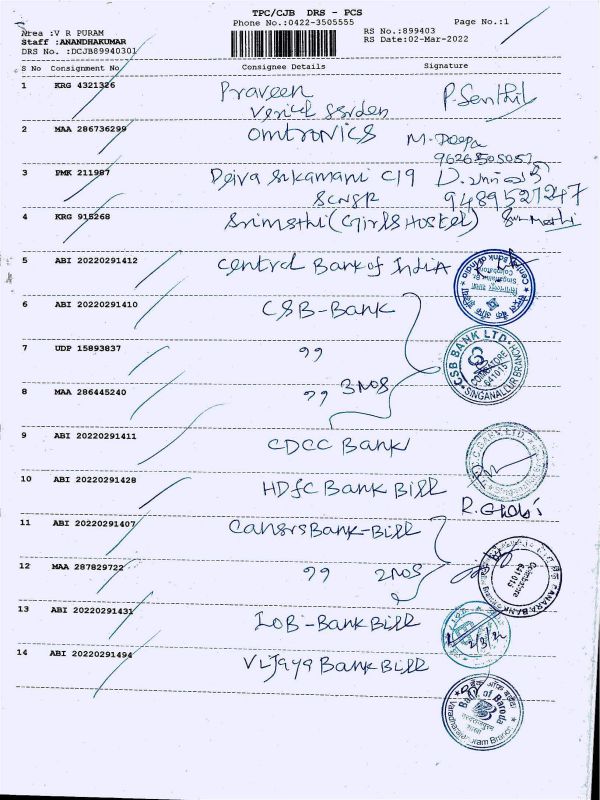 TPC/CJB DRS - PCS
Phone No.:0422-3505555
Page No.:1
Area :V R PURAM
Staff :ANANDHAKUMAR
DRS No. :DCJB89940301
RS No.:899403
RS Date:02-Mar-2022
S No Consignment No. Consignee Details Signature
1 KRG 4321326 Praveen P.Senthil
2 MAA 286736299 Omtronics M.Deepa
3 PMK 211987 Deiva sikamani C/9
9489527247
4 KRG 915268 (Girls Hostel)
5 ABI 20220291412 Central Bank of India
6 ABI 20220291410 CSB-Bank
CSB BANK LTD.
COIMBATORE
641015
SINGANALLUR BRANCH
7 UDP 15893837 ,,
8 MAA 286445240 ,, 3NOS
9 ABI 20220291411 CDCC Bank
10 ABI 20220291428 HDFC Bank Bill
11 ABI 20220291407 Bank-Bill
12 MAA 287829722 ,, 2NOS
CANARA BANK
Coimbatore
641 015
13 ABI 20220291431 IOB-Bank Bill
2/3/22
14 ABI 20220291494 Vijaya Bank Bill
Bank of Baroda
Varadharajapuram Branch